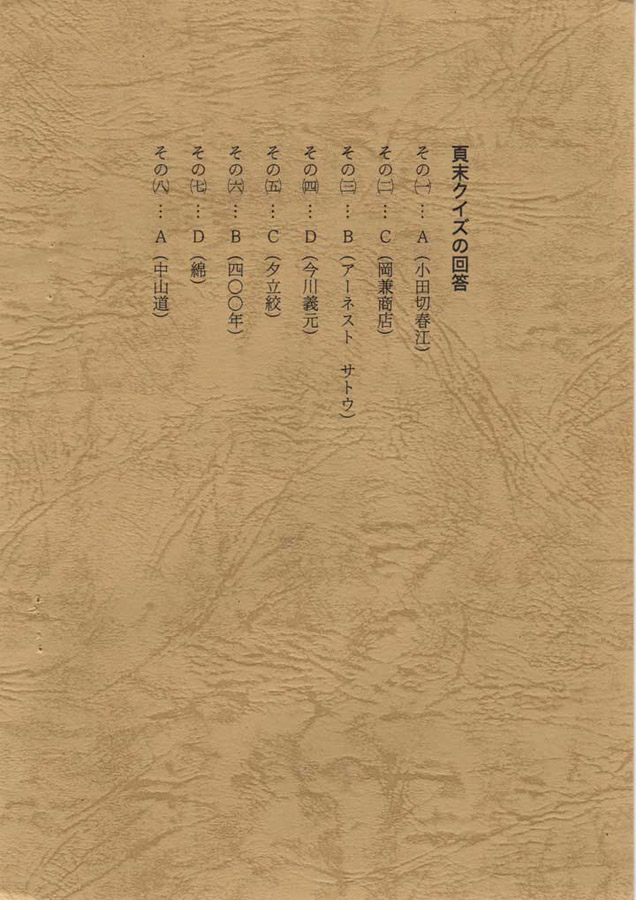 頁末クイズの回答
その㈠ … A（小田切春江）
その㈡ … C（岡兼商店）
その㈢ … B（アーネスト　サトウ）
その㈣ … D（今川義元）
その㈤ … C（夕立絞）
その㈥ … B（四〇〇年）
その㈦ … D（綿）
その㈧ … A（中山道）